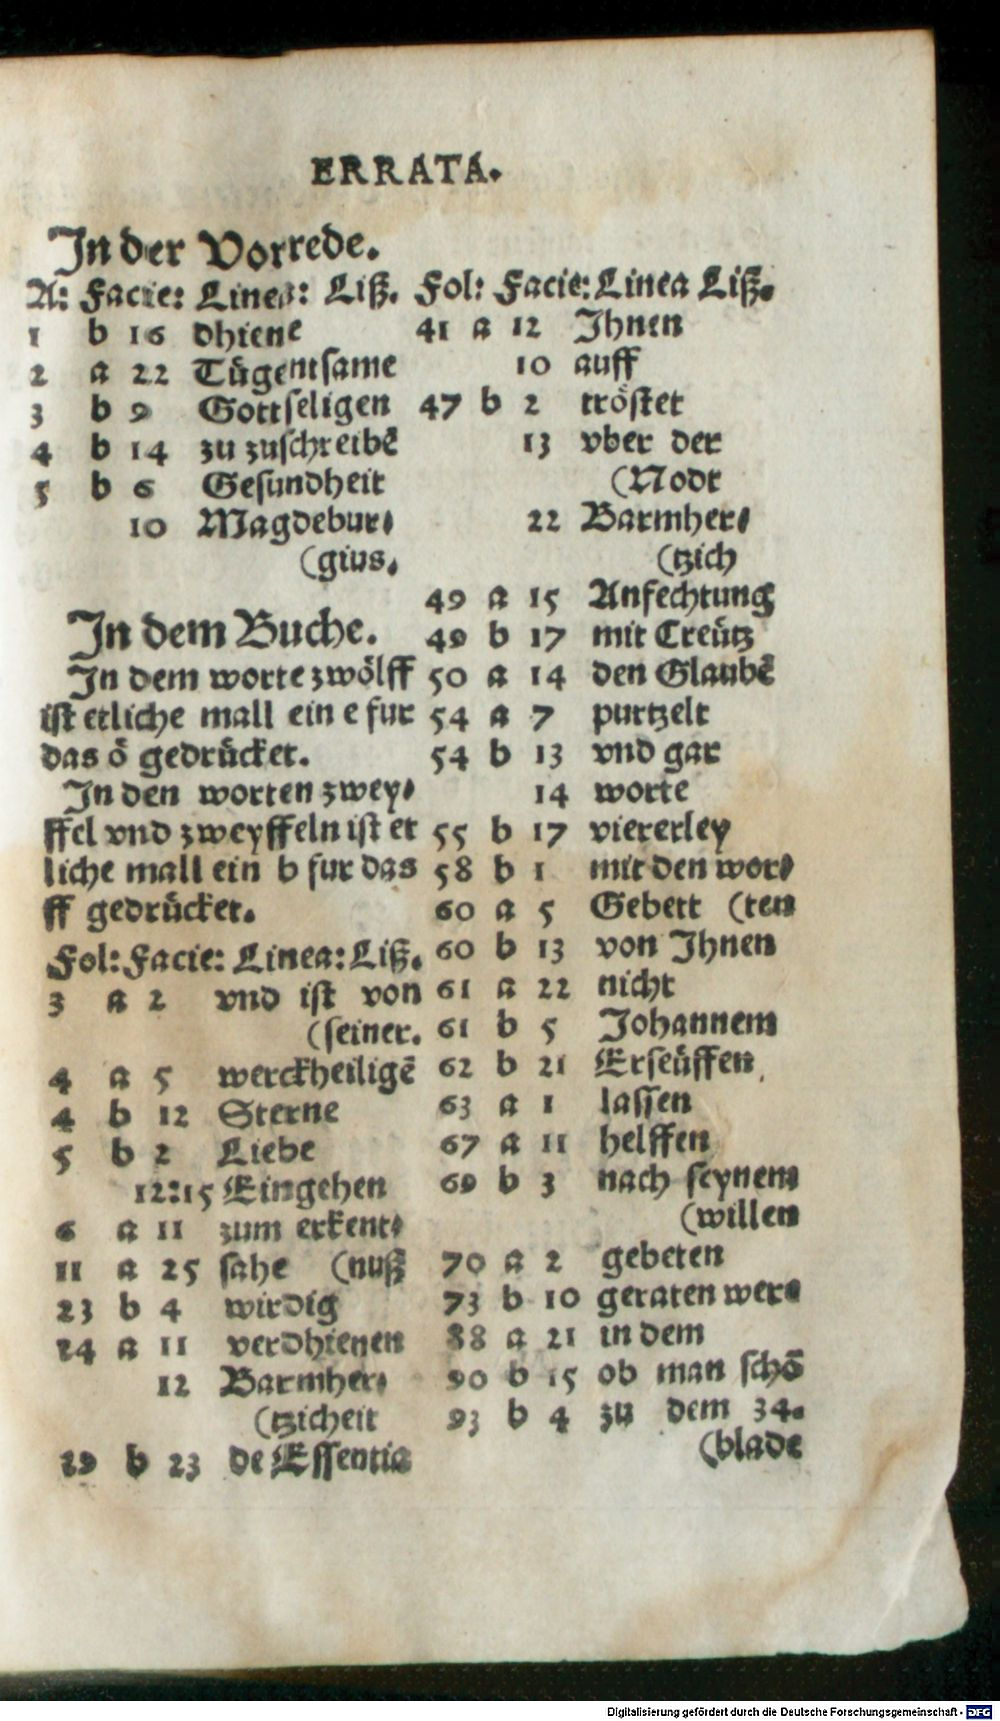 ERRATA.
In der Vorrede.
A: Facie: Linea: Liß.
1 b 16 dhiene
2 a 22 Tügentsame
3 b 9 Gottseligen
4 b 14 zu zuschreibē
5 b 6 Gesundheit
10 Magdebur⸗
(gius.
In dem Buche.
In dem worte zwölff
ist etliche mall ein e fur
das ö gedrücket.
In den worten zwey⸗
ffel vnd zweyffeln ist et
liche mall ein b fur das
ff gedrücket.
Fol: Facie: Linea: Liß.
3 a 2 vnd ist von
(seiner.
4 a 5 werckheiligē
4 b 12 Sterne
5 b 2 Liebe
12:15 Eingehen
6 a 11 zum erkent⸗
11 a 25 sahe (nuß
23 b 4 wirdig
24 a 11 verdhienen
12 Barmher⸗
(tzicheit
29 b 23 de Essentia
Fol: Facie: Linea Liß.
41 a 12 Ihnen
10 auff
47 b 2 tröstet
13 vber der
(Nodt
22 Barmher⸗
(tzich
49 a 15 Anfechtung
49 b 17 mit Creütz
50 a 14 den Glaubē
54 a 7 purtzelt
54 b 13 vnd gar
14 worte
55 b 17 viererley
58 b 1 mit den wor⸗
60 a 5 Gebett (ten
60 b 13 von Ihnen
61 a 22 nicht
61 b 5 Johannem
62 b 21 Erseüffen
63 a 1 lassen
67 a 11 helffen
69 b 3 nach seynem
(willen
70 a 2 gebeten
73 b 10 geraten wer⸗
88 a 21 in dem
90 b 15 ob man schō
93 b 4 zu dem 34.
(blade
Digitalisierung gefördert durch die Deutsche Forschungsgemeinschaft - DFG